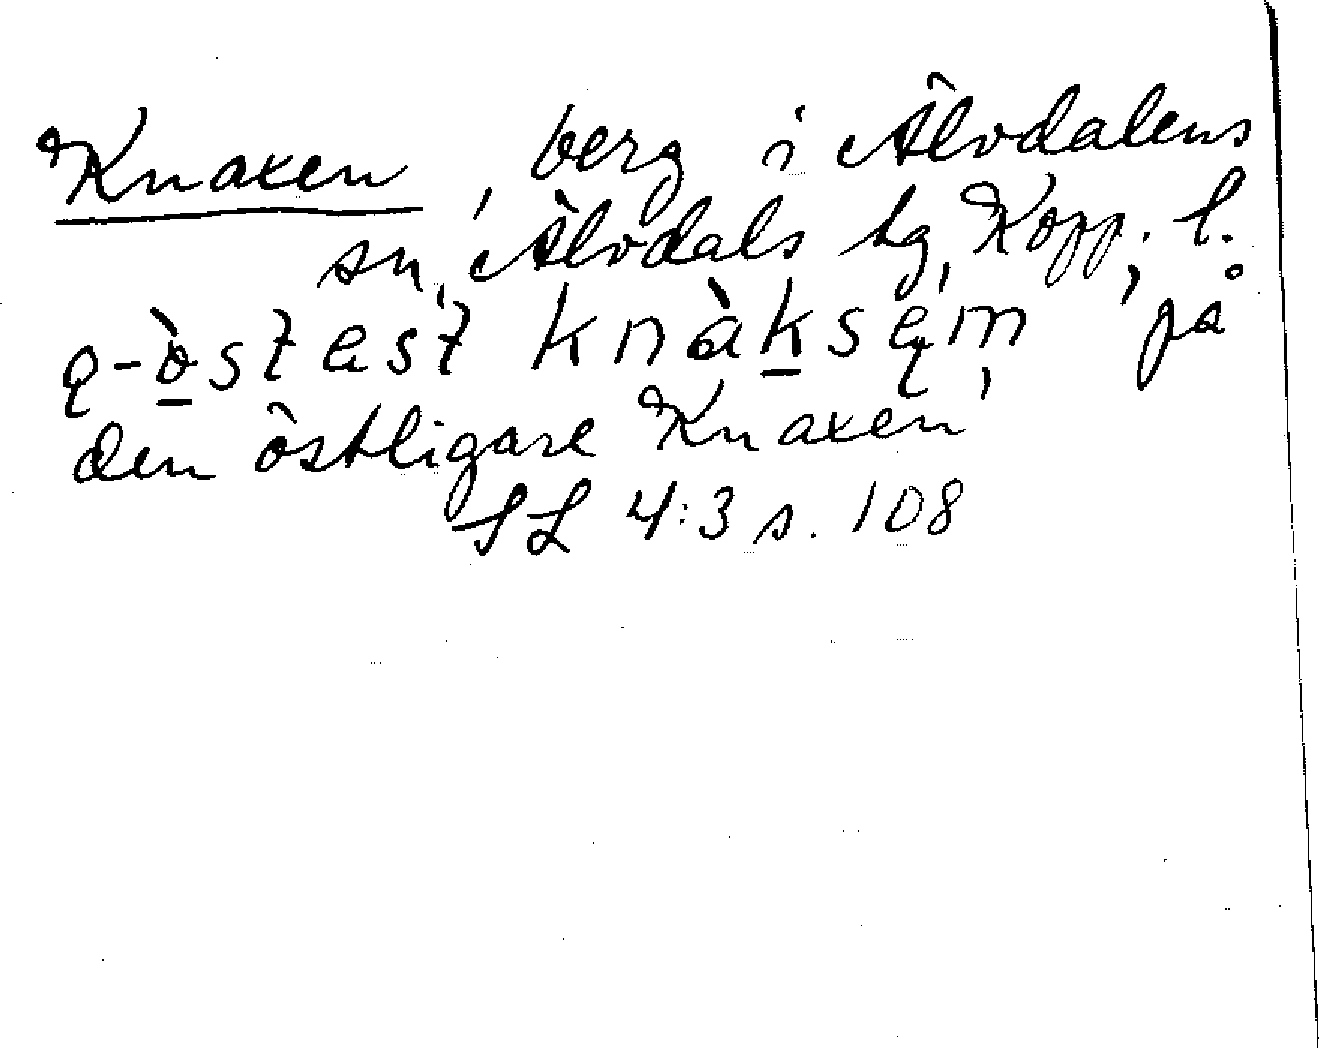 Knaxen, berg i Älvdalens
sn, Älvdals tg, Kopp. l.
knàksęm 'på
den östligare Knaxen'
SL 4:3 s. 108